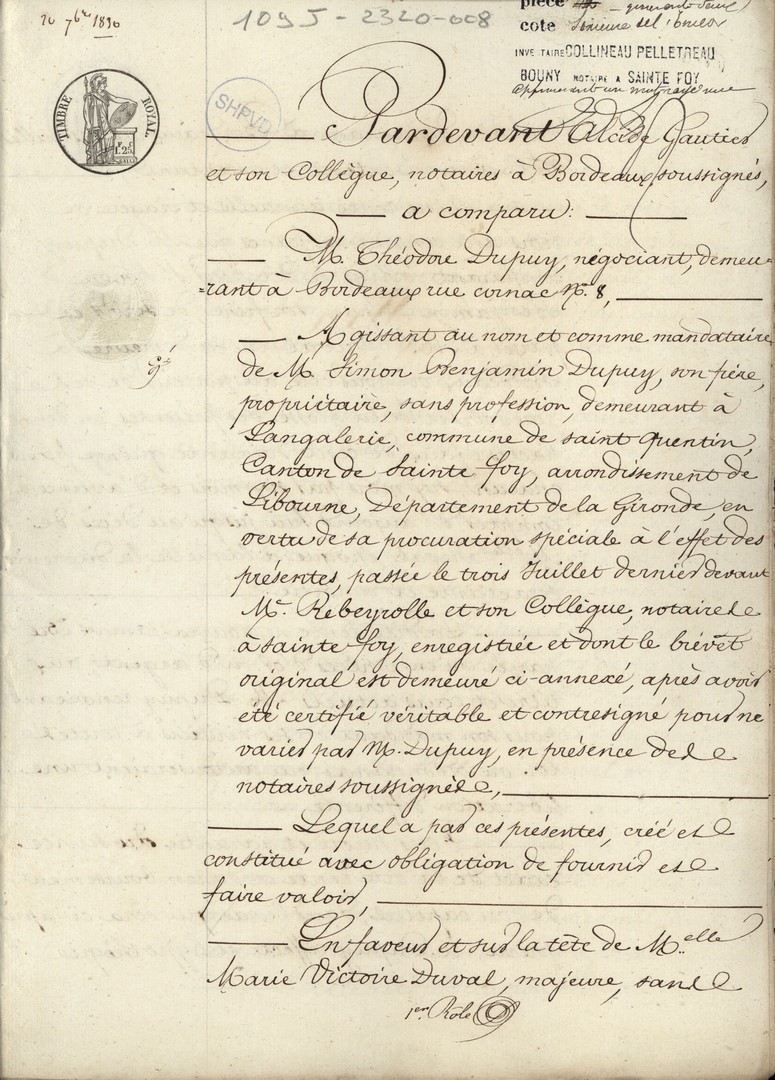 20 7bre 1830
1095-2320-008
piece
cote
INVENTAIRE COLLINEAU PELLETREAU
BOUNY NOTAIRE A SAINTE FOY
TIMBRE ROYAL
SHPVD
Pardevant Alcide Gautier
et son Collègue, notaires à Bordeaux soussignés,
a comparu:
M. Théodore Dupuy, négociant, demeu=
=rant à Bordeaux rue cornac No. 8,
Agissant au nom et comme mandataire
de M. Simon Benjamin Dupuy, son père,
propriétaire, sans profession, demeurant à
Langalerie, commune de saint quentin,
Canton de Sainte foy, arrondissement de
Libourne, Département de la Gironde, en
vertu de sa procuration spéciale à l'effet des
présentes, passée le trois Juillet dernier devant
Me. Rebeyrolle et son Collègue, notaires
à sainte foy, enregistrée et dont le brévet
original est demeuré ci-annexé, après avoir
été certifié véritable et contresigné pour ne
varier par M. Dupuy, en présence des
notaires soussignés,
Lequel a par ces présentes, créé et
constitué avec obligation de fournir et
faire valoir,
En faveur et sur la tête de Melle
Marie Victoire Duval, majeure, sans
1er Role